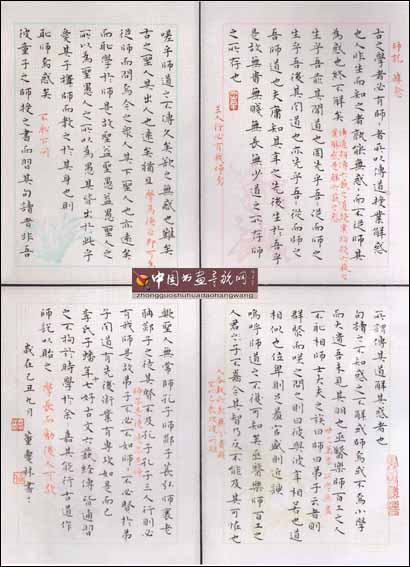 師說 韓愈
古之學者必有師師者所以傳道授業解惑
也人非生而知之者孰能無惑惑而不從師其
為惑也終不解矣
生乎吾前其聞道也固先乎吾吾從而師之
生乎吾後其聞道也亦先乎吾吾從而師之
吾師道也夫庸知其年之先後生於吾乎
是故無貴無賤無長無少道之所存師
之所存也
三人行必有我師焉
嗟乎師道之不傳久矣欲人之無惑也難矣
古之聖人其出人也遠矣猶且
從師而問焉今之眾人其下聖人也亦遠矣
而恥學於師是故聖益聖愚益愚聖人之
所以為聖愚人之所以為愚其皆出於此乎
愛其子擇師而教之於其身也則
恥師焉惑矣
不恥下問
彼童子之師授之書而習其句讀者非吾
中国书画导航网
zhongguoshuhuadaohangwang
所謂傳其道解其惑者也
句讀之不知惑之不解或師焉或不焉小學
而大遺吾未見其明也巫醫樂師百工之人
不恥相師士大夫之族曰師曰弟子云者則
群聚而笑之問之則曰彼與彼年相若也道
相似也位卑則足羞官盛則近諛
嗚呼師道之不復可知矣巫醫樂師百工之
人君子不齒今其智乃反不能及其可怪也
歟聖人無常師孔子師郯子萇弘師襄老
聃郯子之徒其賢不及孔子孔子三人行則必
有我師是故弟子不必不如師師不必賢於弟
子聞道有先後術業有專攻如是而已
李氏子蟠年十七好古文六藝經傳皆通習
之不拘於時學於余余嘉其能行古道作
師說以貽之
歲在乙丑九月